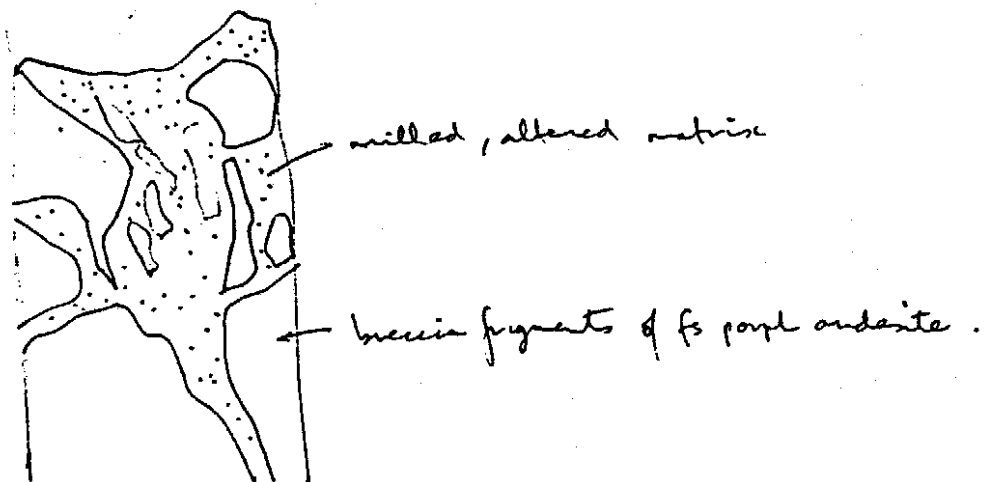 milled, altered matrix
breccia fragments of fs porph andesite.